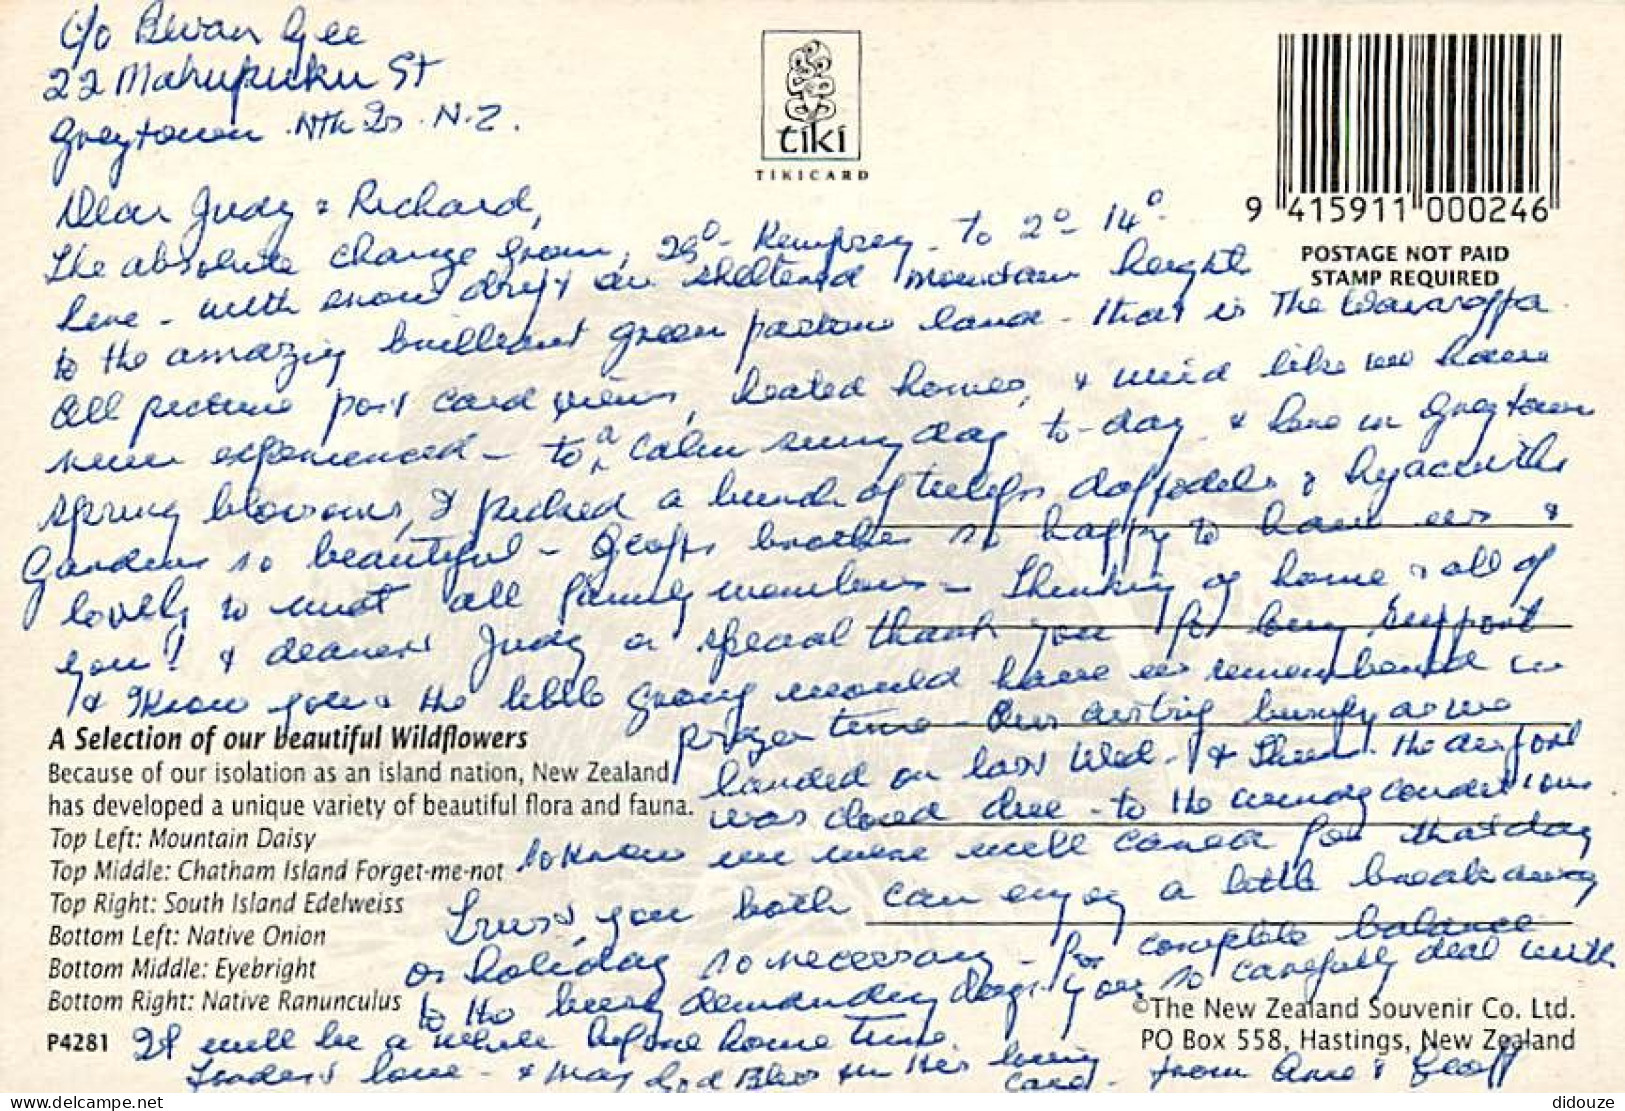 c/o Bevan Gee
22 Mahupuku St
Greytown Nth Is. N.Z.
tiki
TIKICARD
9 415911 000246
POSTAGE NOT PAID
STAMP REQUIRED
Dear Judy & Richard,
The absolute change from, 29° - Kempsey - to 2° - 14°
here - with snow drift on sheltered mountain height
to the amazing brilliant green pasture land - that is The Wairarapa
All picture post card views, heated homes, & wind like we have
never experienced - to a calm sunny day to-day & here in Greytown
spring blossoms, I picked a bunch of tulips, daffodels & hyacinths
Gardens so beautiful - Geoffs brother so happy to have us &
lovely to meet all family members - Thinking of home & all of
you! & dearest Judy a special thank you for being support
& I know you & the little group would have us remembered in
prayer time - Our airbus as we
landed on last Wed. - & then the airport
was closed due - to the windy conditions
so know we were well cared for that day
Trust you both can enjoy a little break away
or holiday so necessary - for complete balance
to the busy demanding days you so carefully deal with
It will be a while before home time.
Tenderest love - & may God Bless in His loving
care - from Anne & Geoff
A Selection of our beautiful Wildflowers
Because of our isolation as an island nation, New Zealand
has developed a unique variety of beautiful flora and fauna.
Top Left: Mountain Daisy
Top Middle: Chatham Island Forget-me-not
Top Right: South Island Edelweiss
Bottom Left: Native Onion
Bottom Middle: Eyebright
Bottom Right: Native Ranunculus
P4281
©The New Zealand Souvenir Co. Ltd.
PO Box 558, Hastings, New Zealand
https://www.delcampe.net
didouze